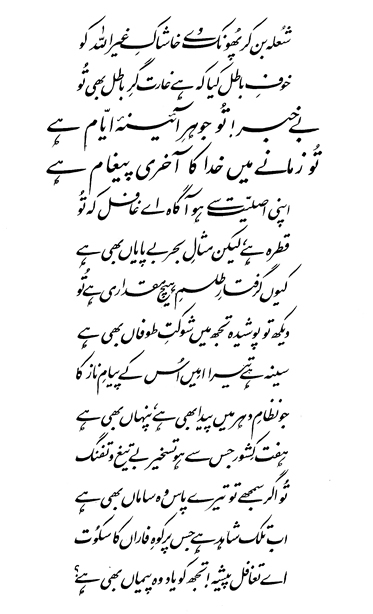 شعلہ بن کر پھونک دے خاشاکِ غیر اللہ کو
خوفِ باطل کیا کہ ہے غارت گرِ باطل بھی تُو
بے خبر! تُو جوہرِ آئینۂ ایّام ہے
تُو زمانے میں خدا کا آخری پیغام ہے
اپنی اصلیّت سے ہو آگاہ اے غافل کہ تُو
قطرہ ہے، لیکن مثالِ بحرِ بے پایاں بھی ہے
کیوں گرفتارِ طلسمِ ہیچ مقداری ہے تُو
دیکھ تو پوشیدہ تجھ میں شوکتِ طوفاں بھی ہے
سینہ ہے تیرا امیں اُس کے پیامِ ناز کا
جو نظامِ دہر میں پیدا بھی ہے، پنہاں بھی ہے
ہفت کشور جس سے ہو تسخیر بے تیغ و تفنگ
تُو اگر سمجھے تو تیرے پاس وہ ساماں بھی ہے
اب تلک شاہد ہے جس پر کوہِ فاراں کا سکُوت
اے تغافل پیشہ! تجھ کو یاد وہ پیماں بھی ہے؟